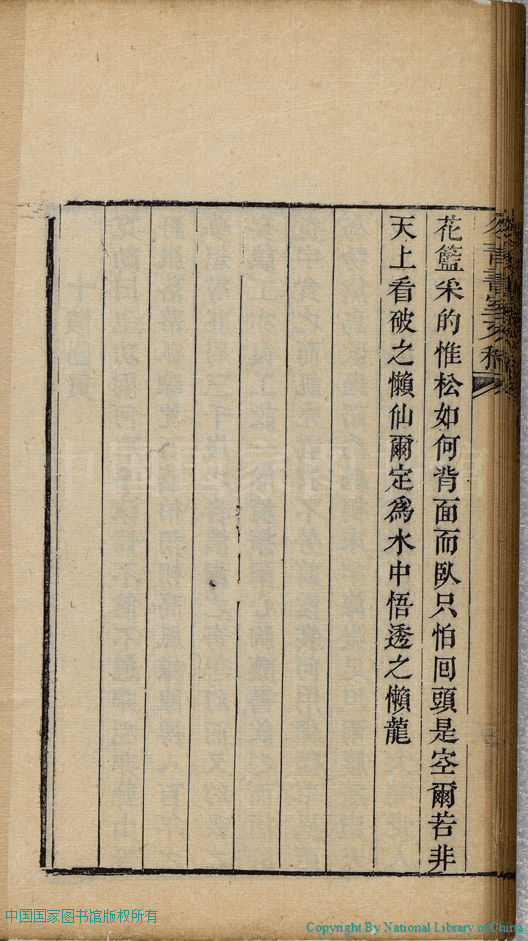 花籃采的惟松如何背面而臥只怕囘頭是空爾若非
天上看破之懶仙爾定為水中悟透之懶龍
中国国家图书馆版权所有
Copyright By National Library of China